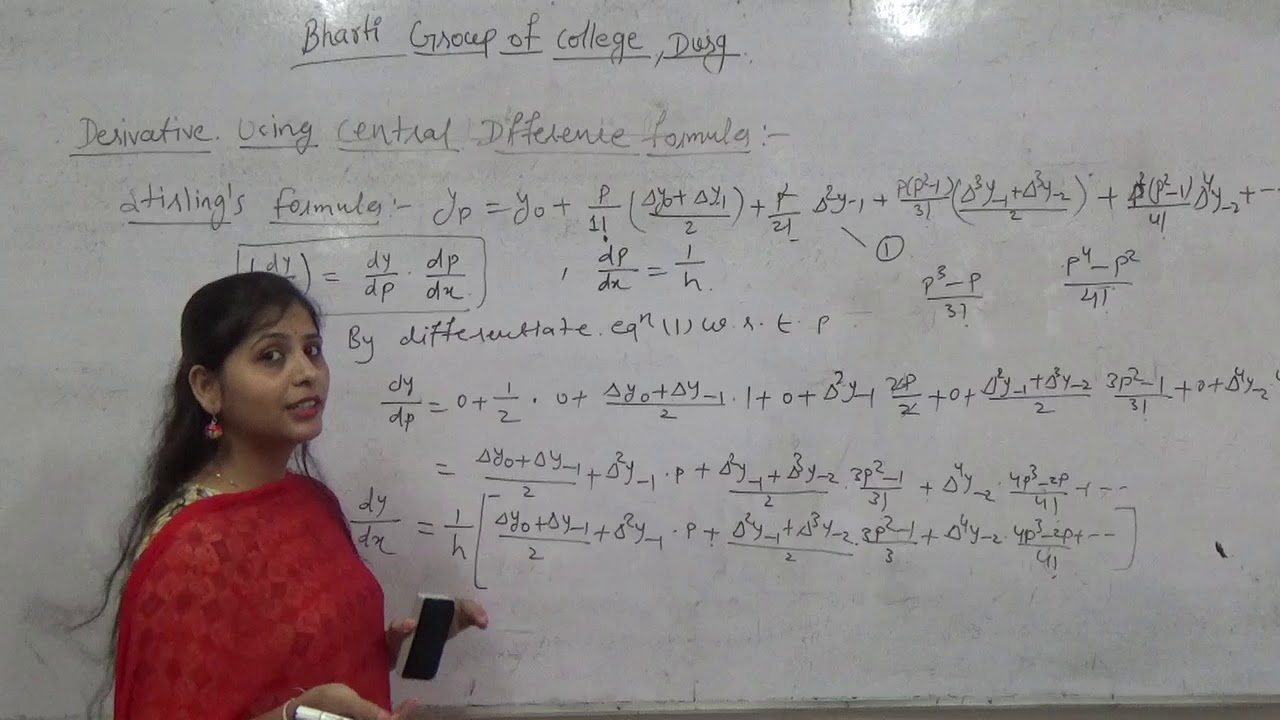 Bharti Group of College, Durg.
Derivative Using Central Difference formula:-
Stirling's formula:- yp = y0 + p/1! (Δy0 + Δy1)/2 + p²/2! Δ²y-1 + p(p²-1)/3! (Δ³y-1 + Δ³y-2)/2 + p²(p²-1)/4! Δ⁴y-2 + --
dy ) = dy/dp · dp/dx , dp/dx = 1/h. ① (p³-p)/3! (p⁴-p²)/4!
By differentiate eqⁿ (1) w.r.t. p
dy/dp = 0 + 1/2 · 0 + (Δy0 + Δy-1)/2 · 1 + 0 + Δ²y-1 2p/2 + 0 + (Δ³y-1 + Δ³y-2)/2 (3p²-1)/3! + 0 + Δ⁴y-2
= (Δy0 + Δy-1)/2 + Δ²y-1 · p + (Δ²y-1 + Δ³y-2)/2 · (3p²-1)/3! + Δ⁴y-2 · (4p³-2p)/4! + --
dy/dx = 1/h [ (Δy0 + Δy-1)/2 + Δ²y-1 · p + (Δ²y-1 + Δ³y-2)/2 · (3p²-1)/3 + Δ⁴y-2 · (4p³-2p)/4! + -- ]